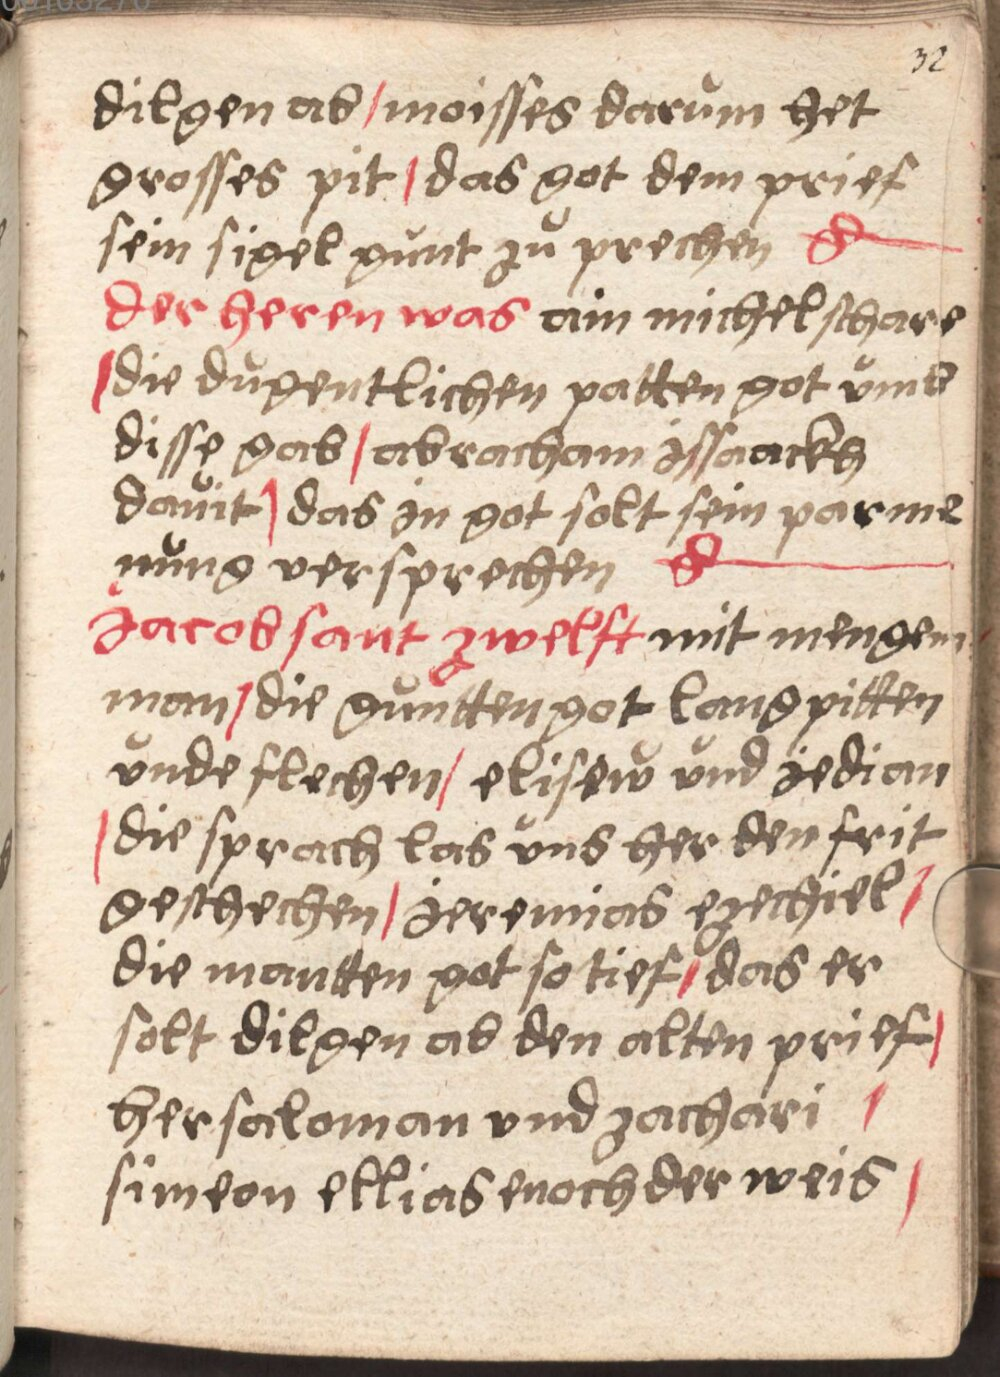 32
dilgen ab / moisses darům het
grosses pit / das got dem prief
sein sigel gůnt zů prechen
der heren was ain michel schare
/ die důgentlichen patten got ůmb
disse gab / abracham issaackh
dauit / das in got solt sein parme
nůng versprechen
Jacob sant zwelft mit mengem
man / die gůntten got lang pitten
ůnde flechen / elisew ůnd jedian
/ die sprach las ůns her den frit
geschechen / jeremias ezechiel /
die mantten got so tief / das er
solt dilgen ab den alten prief /
her saloman vnd zachari /
simeon ellias enoch der weis /